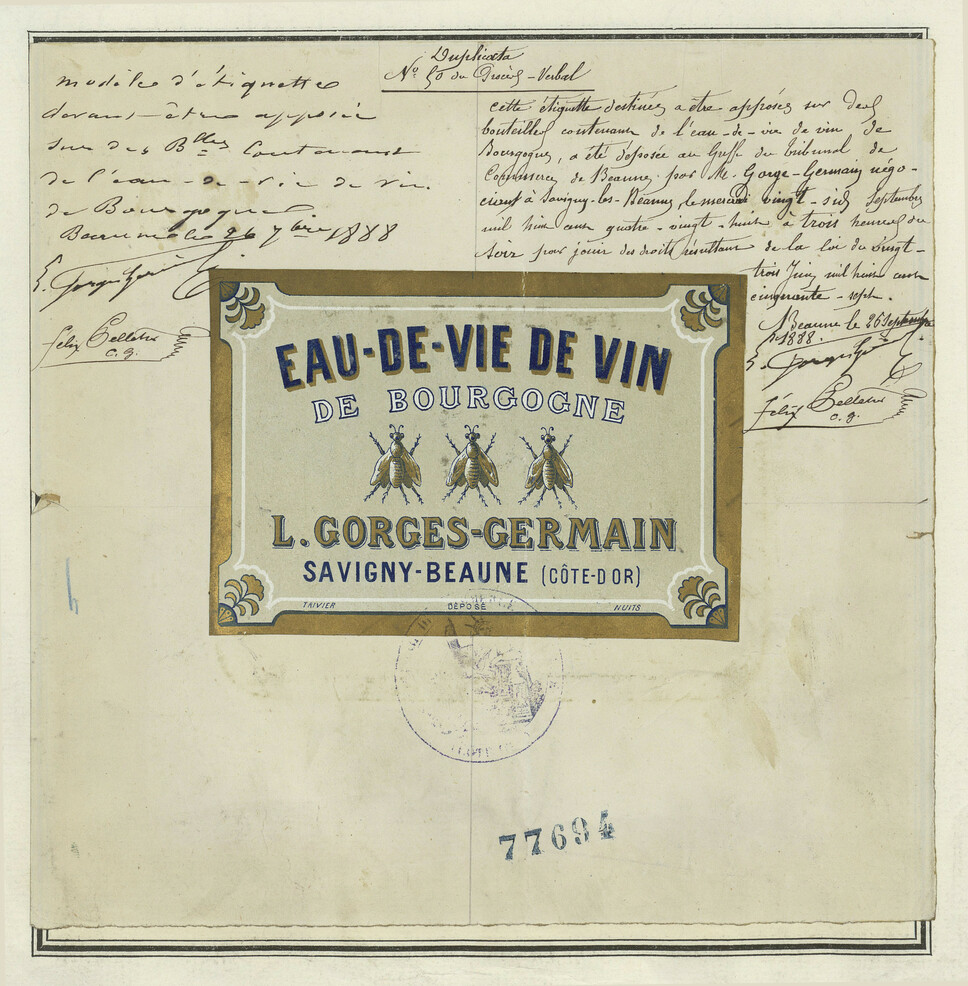 Duplicata
N° 50 du Procès-Verbal
modèle d'étiquette
devant être apposée
sur des Blles contenant
de l'eau-de-vie de vin
de Bourgogne
Beaune le 26 7bre 1888
Félix Pelletier
c. g.
Cette étiquette destinée a être apposée sur des
bouteilles contenant de l'eau-de-vie de vin de
Bourgogne, a été déposée au Greffe du tribunal de
Commerce de Beaune, par M. Gorge-Germain négo-
ciant à Savigny-les-Beaune, le mercredi vingt-six Septembre
mil huit cent quatre-vingt-huit à trois heures du
soir pour jouir des droits résultant de la loi du vingt-
trois Juin mil huit cent
cinquante-sept.
Beaune le 26 Septembre
1888.
Félix Pelletier
c. g.
EAU-DE-VIE DE VIN
DE BOURGOGNE
L. GORGES-GERMAIN
SAVIGNY-BEAUNE (CÔTE-D'OR)
TRIVIER DÉPOSÉ NUITS
77694